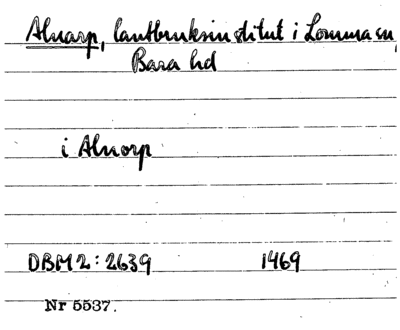 Alnarp, lantbruksinstitut i Lomma sn,
Bara hd
i Alnorp
DBM 2: 2639 1469
Nr 5537.